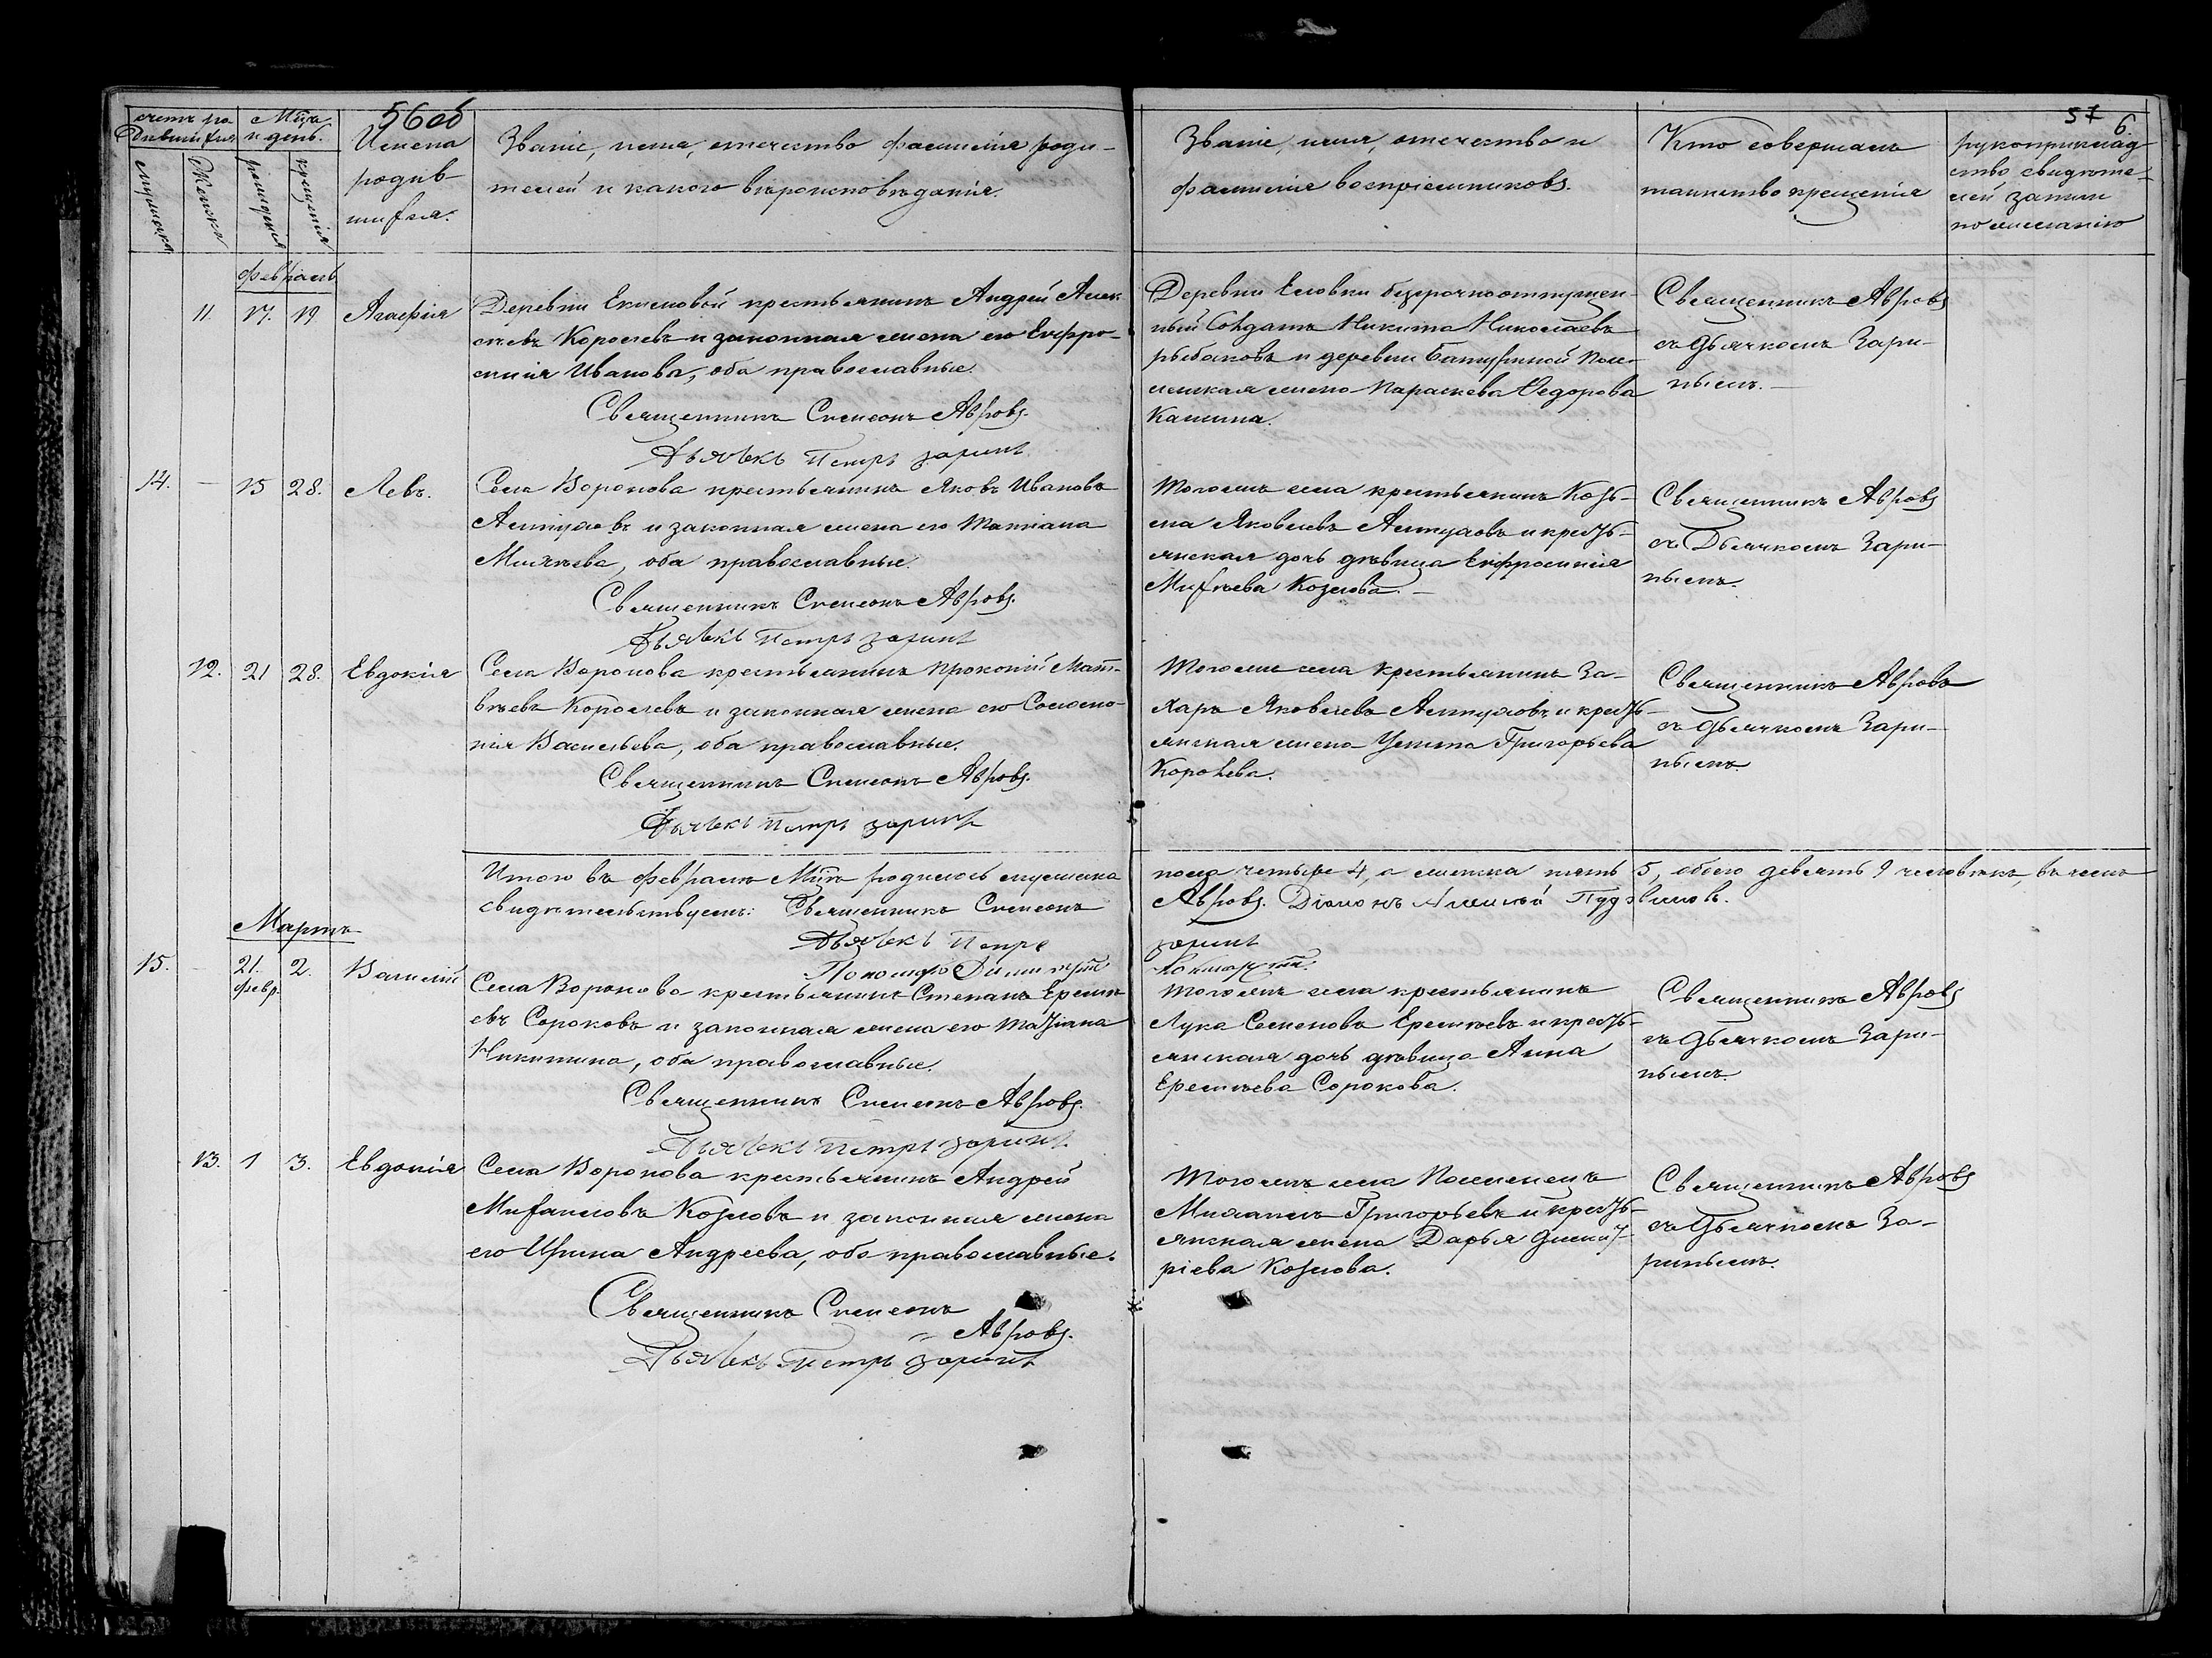 56 об
57
6.
счетъ ро-
дившихся
Мцъ
и день.
мужеска
Женска
рожденія
крещенія
Имена
родив-
шихся.
Званіе, имя, отчество фамилія роди-
телей и какого вѣроисповѣданія.
Званіе, имя, отчество и
фамилія воспріемниковъ.
Кто совершалъ
таинство крещенія
рукоприклад
ство свидѣте-
лей записи
по желанію
февраль
11.
17.
19
Агафія
Деревни Екимовой крестьянинъ Андрей Алек-
сѣевъ Королевъ и законная жена его Евфро-
синія Иванова, оба православные.
Священникъ Симеонъ Авровъ.
Дьячекъ Петръ Заринъ
Деревни Еловки безсрочноотпущен-
ный Солдатъ Никита Николаевъ
рыбаковъ и деревни Батуриной Посе-
женская жена Параскева Ѳедорова
Кашина.
Священникъ Авровъ
съ дьячкомъ Зари-
нымъ.—
14.
—
15
28.
Левъ.
Села Воронова крестьянинъ Яковъ Ивановъ
и законная жена его Татіана
оба православные.
Священникъ Симеонъ Авровъ.
Дьячекъ Петръ Заринъ
Тогожъ села крестьянинъ Козь-
ма Яковлевъ и кресть-
янская дочь дѣвица Евфросинія
Михѣева Козлова.—
Священникъ Авровъ
съ Дьячкомъ Зари-
нымъ.
12.
21
28.
Евдокія
Села Воронова крестьянинъ Прокопій Мат-
вѣевъ Королевъ и законная жена его Соломо-
нія Васильева, оба православные.
Священникъ Симеонъ Авровъ.
Дьячекъ Петръ Заринъ
Тогоже села крестьянинъ За-
харъ Яковлевъ и кресть-
янская жена Устина Григорьева
Королева.
Священникъ Авровъ
съ дьячкомъ Зари-
нымъ.
Итого въ февралѣ Мцѣ родилось мужеска пола четыре 4, а женска пять 5, обоего девять 9 человѣкъ, въ чемъ
свидѣтельствуемъ: Священникъ Симеонъ Авровъ. Діаконъ
Дьячекъ Петръ Заринъ
Пономарь Димитрій
Мартъ
15.
—
21.
февр.
2.
Василій
Села Воронова крестьянинъ Степанъ Еремѣ-
евъ Сороковъ и законная жена его Татіана
Никитина, оба православные.
Священникъ Симеонъ Авровъ.
Дьячекъ Петръ Заринъ
Тогожъ села крестьянинъ
Лука Семеновъ Еремѣевъ и кресть-
янская дочь дѣвица Анна
Еремѣева Сорокова.
Священникъ Авровъ
съ дьячкомъ Зари-
нымъ.
13.
1
3.
Евдокія
Села Воронова крестьянинъ Андрей
Михаиловъ Козловъ и законная жена
его Ирина Андреева, оба православные.
Священникъ Симеонъ
Авровъ.
Дьячекъ Петръ Заринъ
Тогожъ села Поселенецъ
Михаилъ Григорьевъ и кресть-
янская жена Дарья Димит-
ріева Козлова.
Священникъ Авровъ
съ дьячкомъ За-
ринымъ.